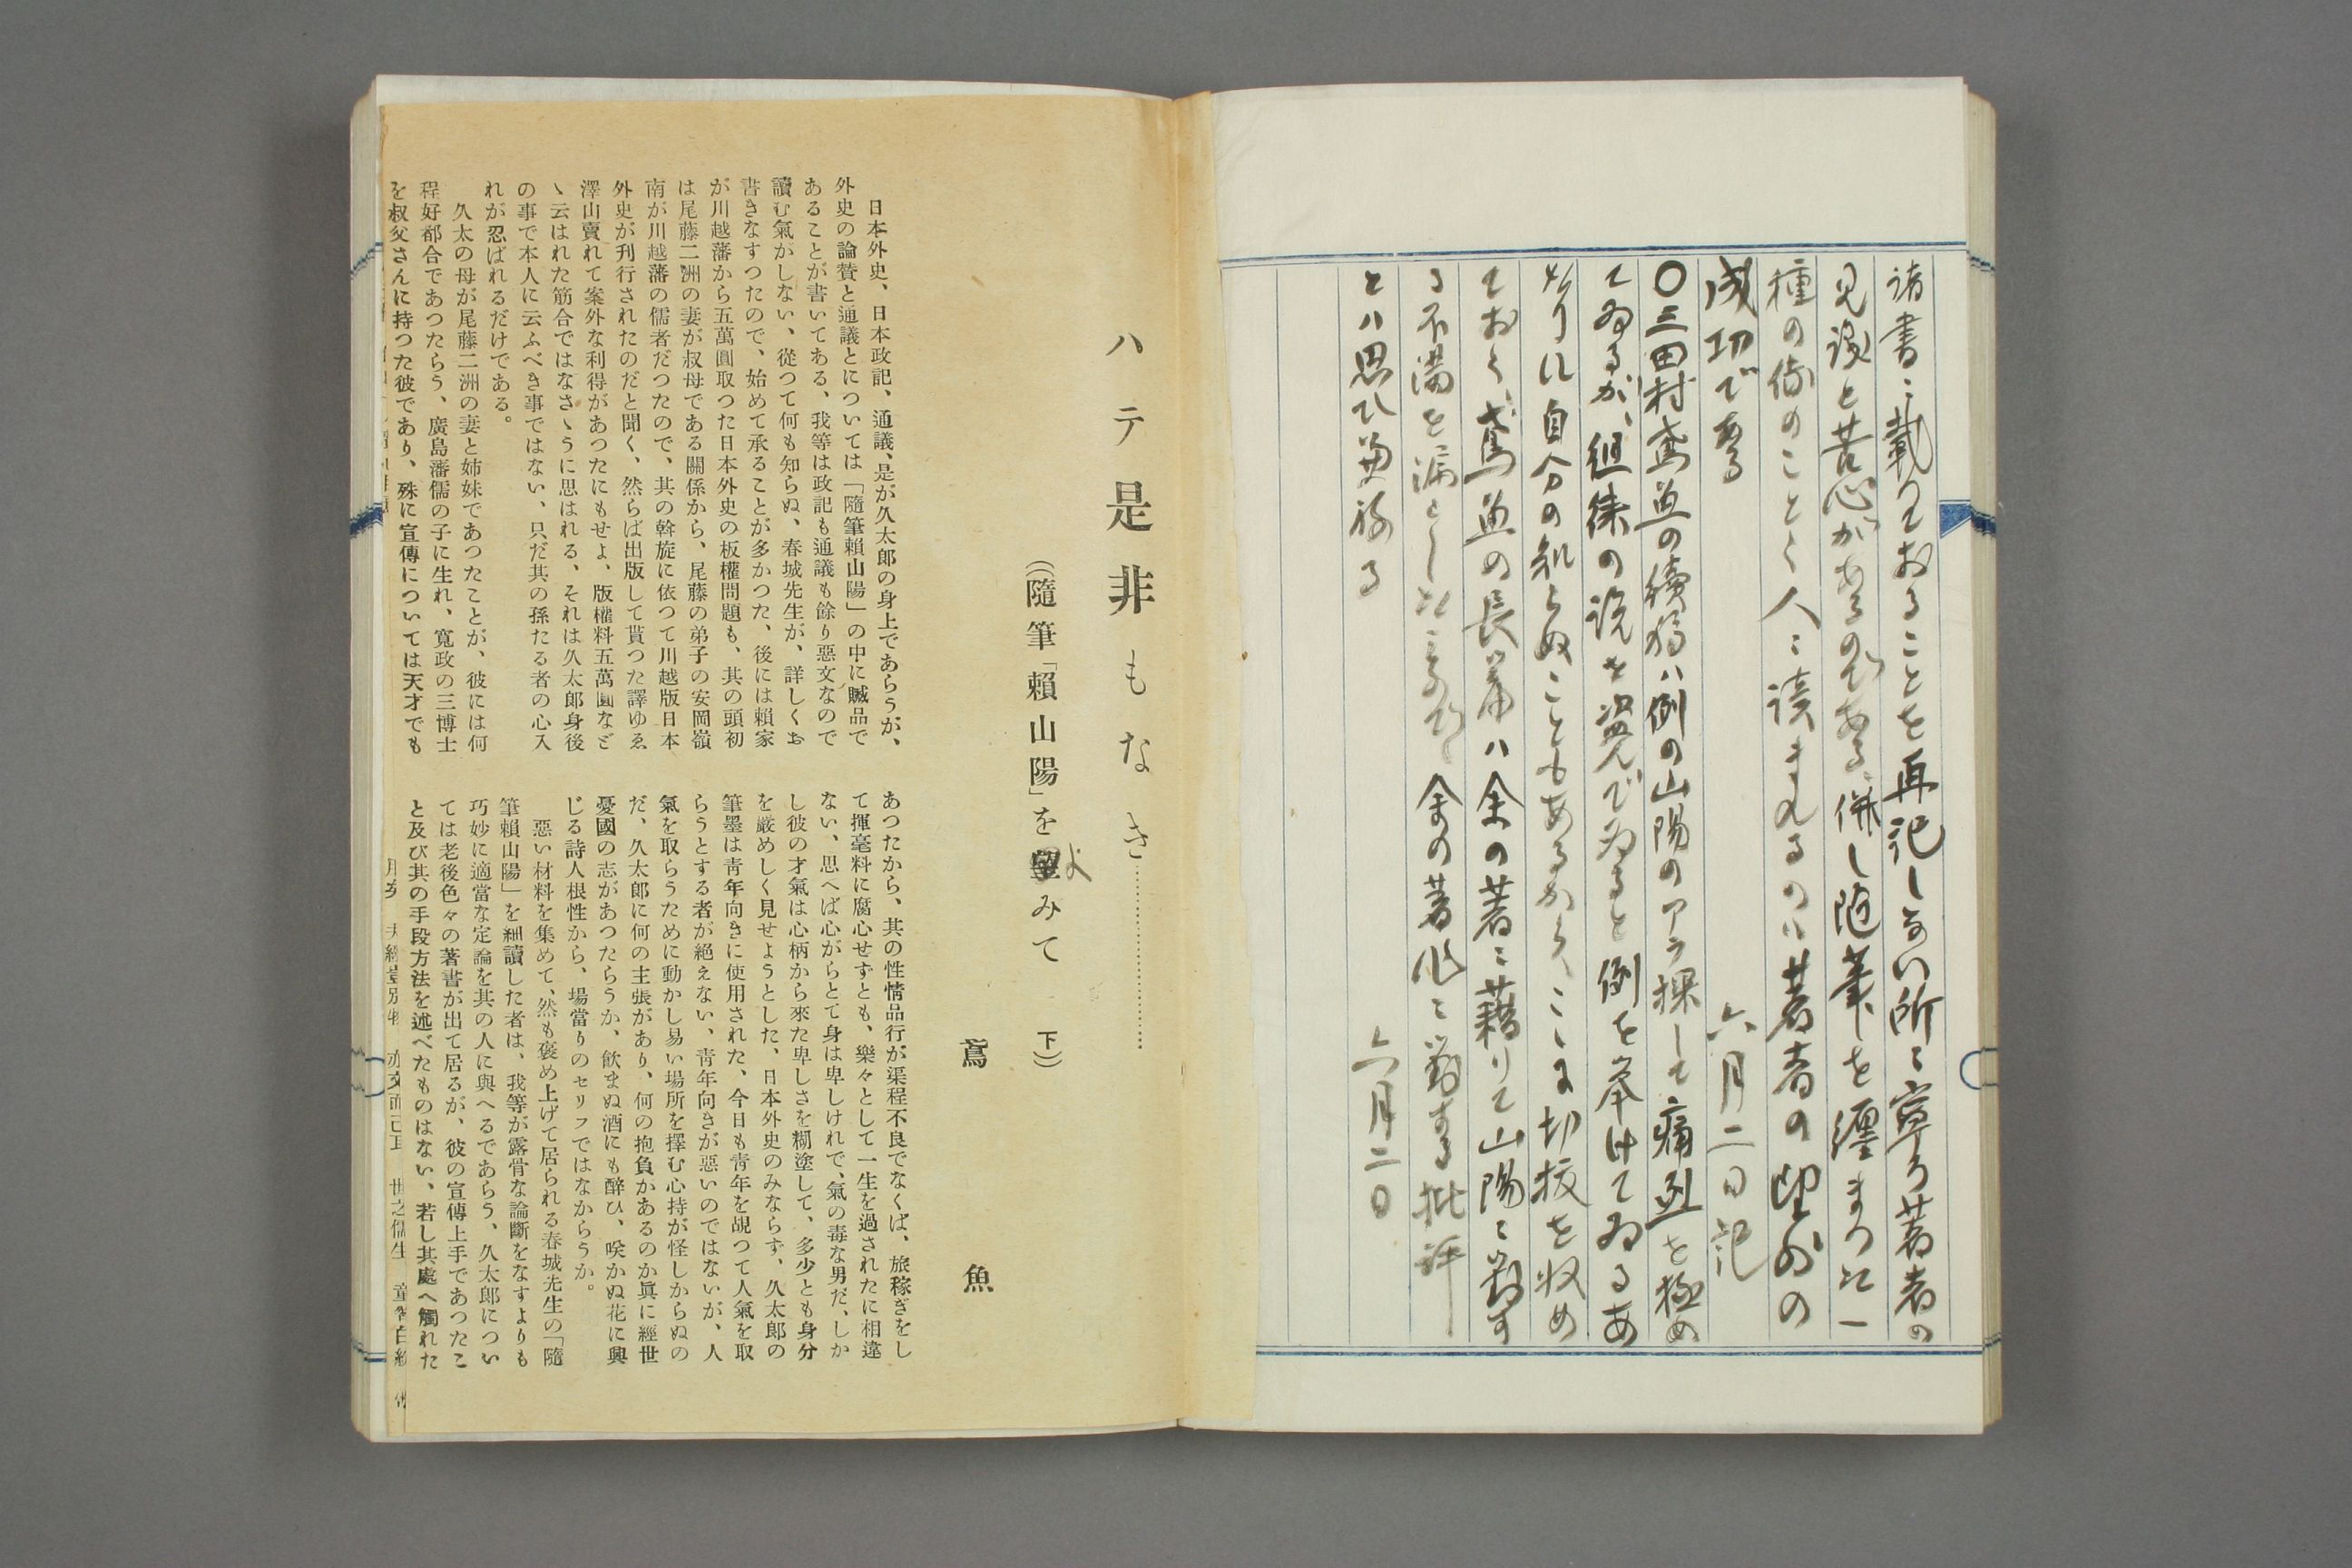 諸書ニ載つておることを再記しない所ニ寧ろ著者の
見識と苦心があるのである、併し随筆を纏まつた一
種の傳のことく人ニ読まれるのハ著者の望外の
成功である
六月二日記
〇三田村鳶魚の續稿ハ例の山陽のアラ探しで痛烈を極め
てゐるが、徂徠の説を盗んでゐると例を挙けてゐるあ
たりハ自分の知らぬこともあるから、こゝに切抜を収め
ておく、鳶魚の長篇ハ余の著ニ藉りて山陽ニ對す
る不満を漏らした
余の著作ニ對する批評
とハ思ひ兼ねる
六月二日
ハテ是非もなき……………
(隨筆「賴山陽」を よみて 下)
鳶魚
日本外史、日本政記、通議、是が久太郎の身上であらうが、
外史の論贊と通議とについては「隨筆賴山陽」の中に贓品で
あることが書いてある、我等は政記も通議も餘り惡文なので
讀む氣がしない、從つて何も知らぬ、春城先生が、詳しくお
書きなすつたので、始めて承ることが多かつた、後には賴家
が川越藩から五萬圓取つた日本外史の板權問題も、其の頭初
は尾藤二洲の妻が叔母である關係から、尾藤の弟子の安岡嶺
南が川越藩の儒者だつたので、其の斡旋に依つて川越版日本
外史が刊行されたのだと聞く、然らば出版して貰つた譯ゆゑ
澤山賣れて案外な利得があつたにもせよ、版權料五萬圓など
ゝ云はれた筋合ではなさゝうに思はれる、それは久太郎身後
の事で本人に云ふべき事ではない、只だ其の孫たる者の心入
れが忍ばれるだけである。
久太の母が尾藤二洲の妻と姉妹であつたことが、彼には何
程好都合であつたらう、廣島藩儒の子に生れ、寬政の三博士
を叔父さんに持つた彼であり、殊に宣傳については天才でも
あつたから、其の性情品行が渠程不良でなくば、旅稼ぎをし
て揮毫料に腐心せずとも、樂々として一生を過されたに相違
ない、思へば心がらとて身は卑しけれで、氣の毒な男だ、しか
し彼の才氣は心柄から來た卑しさを糊塗して、多少とも身分
を嚴めしく見せようとした、日本外史のみならず、久太郎の
筆墨は青年向きに使用された、今日も青年を覘つて人氣を取
らうとする者が絶えない、青年向きが惡いのではないが、人
氣を取らうために動かし易い場所を擇む心持が怪しからぬの
だ、久太郎に何の主張があり、何の抱負があるのか眞に經世
憂國の志があつたらうか、飮まぬ酒にも醉ひ、咲かぬ花に興
じる詩人根性から、場當りのセリフではなからうか。
惡い材料を集めて、然も褒め上げて居られる春城先生の「隨
筆賴山陽」を細讀した者は、我等が露骨な論斷をなすよりも
巧妙に適當な定論を其の人に與へるであらう、久太郎につい
ては老後色々の著書が出て居るが、彼の宣傳上手であつたこ
と及び其の手段方法を述べたものはない、若し其處へ觸れた